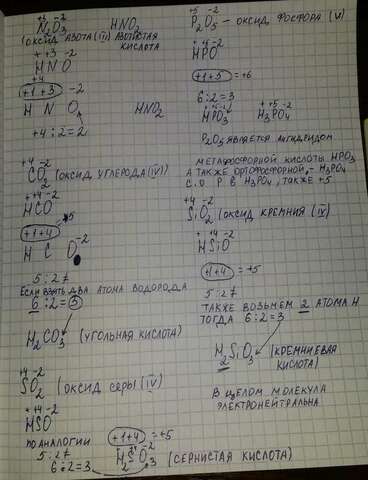 +3 -2
N2O3 HNO2
(ОКСИД АЗОТА (III) АЗОТИСТАЯ
КИСЛОТА
+ +3 -2
H N O
+4
+1+3 -2
H N O HNO2
+4:2=2
+4 -2
CO2 (ОКСИД УГЛЕРОДА (IV)
+ +4 -2
HCO
+1+4 = +5
H C O-2
5:2 ≠
ЕСЛИ ВЗЯТЬ ДВА АТОМА ВОДОРОДА
6:2=3
H2CO3 (УГОЛЬНАЯ КИСЛОТА)
+4 -2
SO2 (ОКСИД СЕРЫ (IV)
+ +4 -2
HSO
ПО АНАЛОГИИ +1+4 = +5
5:2 ≠
6:2=3 H2SO3 (СЕРНИСТАЯ КИСЛОТА)
+5 -2
P2O5 - ОКСИД ФОСФОРА (V)
+ +5 -2
HPO
+1+5 = +6
6:2=3
+ +5 -2 + +5 -2
HPO3 H3PO4
P2O5 ЯВЛЯЕТСЯ АНГИДРИДОМ
МЕТАФОСФОРНОЙ КИСЛОТЫ HPO3
А ТАКЖЕ ОРТОФОСФОРНОЙ, - H3PO4
С.О. P В H3PO4, ТАКЖЕ +5
+4 -2
SiO2 (ОКСИД КРЕМНИЯ (IV)
+ +4 -2
HSiO
+1+4 = +5
5:2 ≠
ТАКЖЕ ВОЗЬМЕМ 2 АТОМА H
ТОГДА 6:2=3
H2SiO3 (КРЕМНИЕВАЯ
КИСЛОТА)
В ЦЕЛОМ МОЛЕКУЛА
ЭЛЕКТРОНЕЙТРАЛЬНА